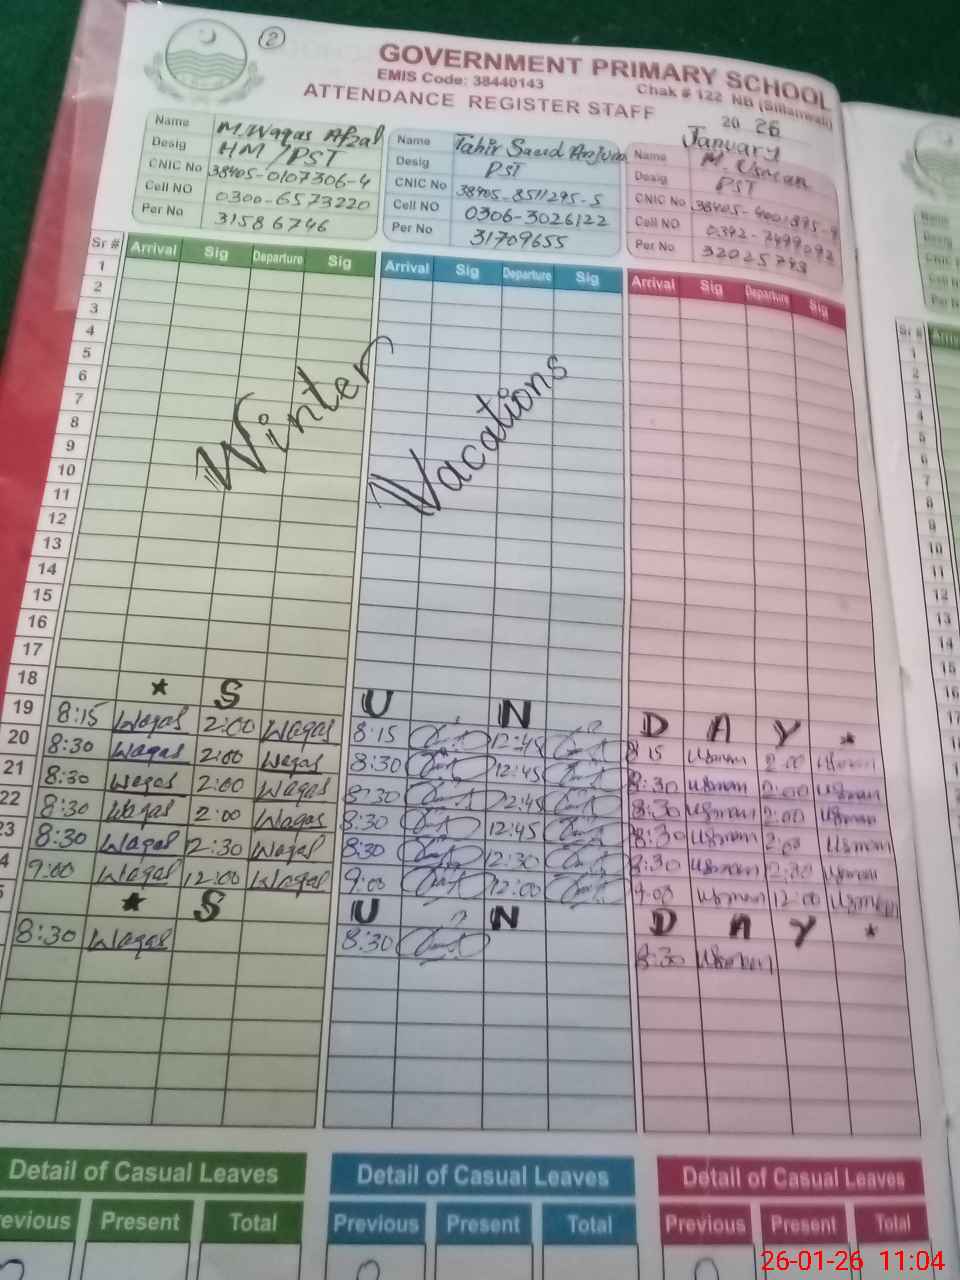 2
GOVERNMENT PRIMARY SCHOOL
EMIS Code: 38440143 Chak # 122 NB (Sillanwali)
ATTENDANCE REGISTER STAFF
20 26
January
Name M. Waqas Afzal
Desig HM/PST
CNIC No 38405-0107306-4
Cell NO 0300-6573220
Per No 31586746
Name Tahir Saeed Anjum
Desig PST
CNIC No 38405-8511295-5
Cell NO 0306-3026122
Per No 31709655
Name M. Usman
Desig PST
CNIC No 38405-
Cell NO
Per No
Sr # Arrival Sig Departure Sig Arrival Sig Departure Sig Arrival Sig Departure Sig
1
2
3
4
5
6
7
8
9
10
11
12
13
14
15
16
17
Winter Vacations
18 * S U N D A Y *
19 8:15 Waqas 2:00 Waqas 8:15 12:45 8:15 Usman 2:00 Usman
20 8:30 Waqas 2:00 Waqas 8:30 12:45 8:30 Usman 2:00 Usman
21 8:30 Waqas 2:00 Waqas 8:30 12:45 8:30 Usman 2:00 Usman
22 8:30 Waqas 2:00 Waqas 8:30 12:45 8:30 Usman 2:00 Usman
23 8:30 Waqas 2:30 Waqas 8:30 12:30 8:30 Usman 2:30 Usman
4 9:00 Waqas 12:00 Waqas 9:00 12:00 9:00 Usman 12:00 Usman
5 * S U N D A Y *
8:30 Waqas 8:30 8:30 Usman
Detail of Casual Leaves Detail of Casual Leaves Detail of Casual Leaves
revious Present Total Previous Present Total Previous Present Total
26-01-26 11:04